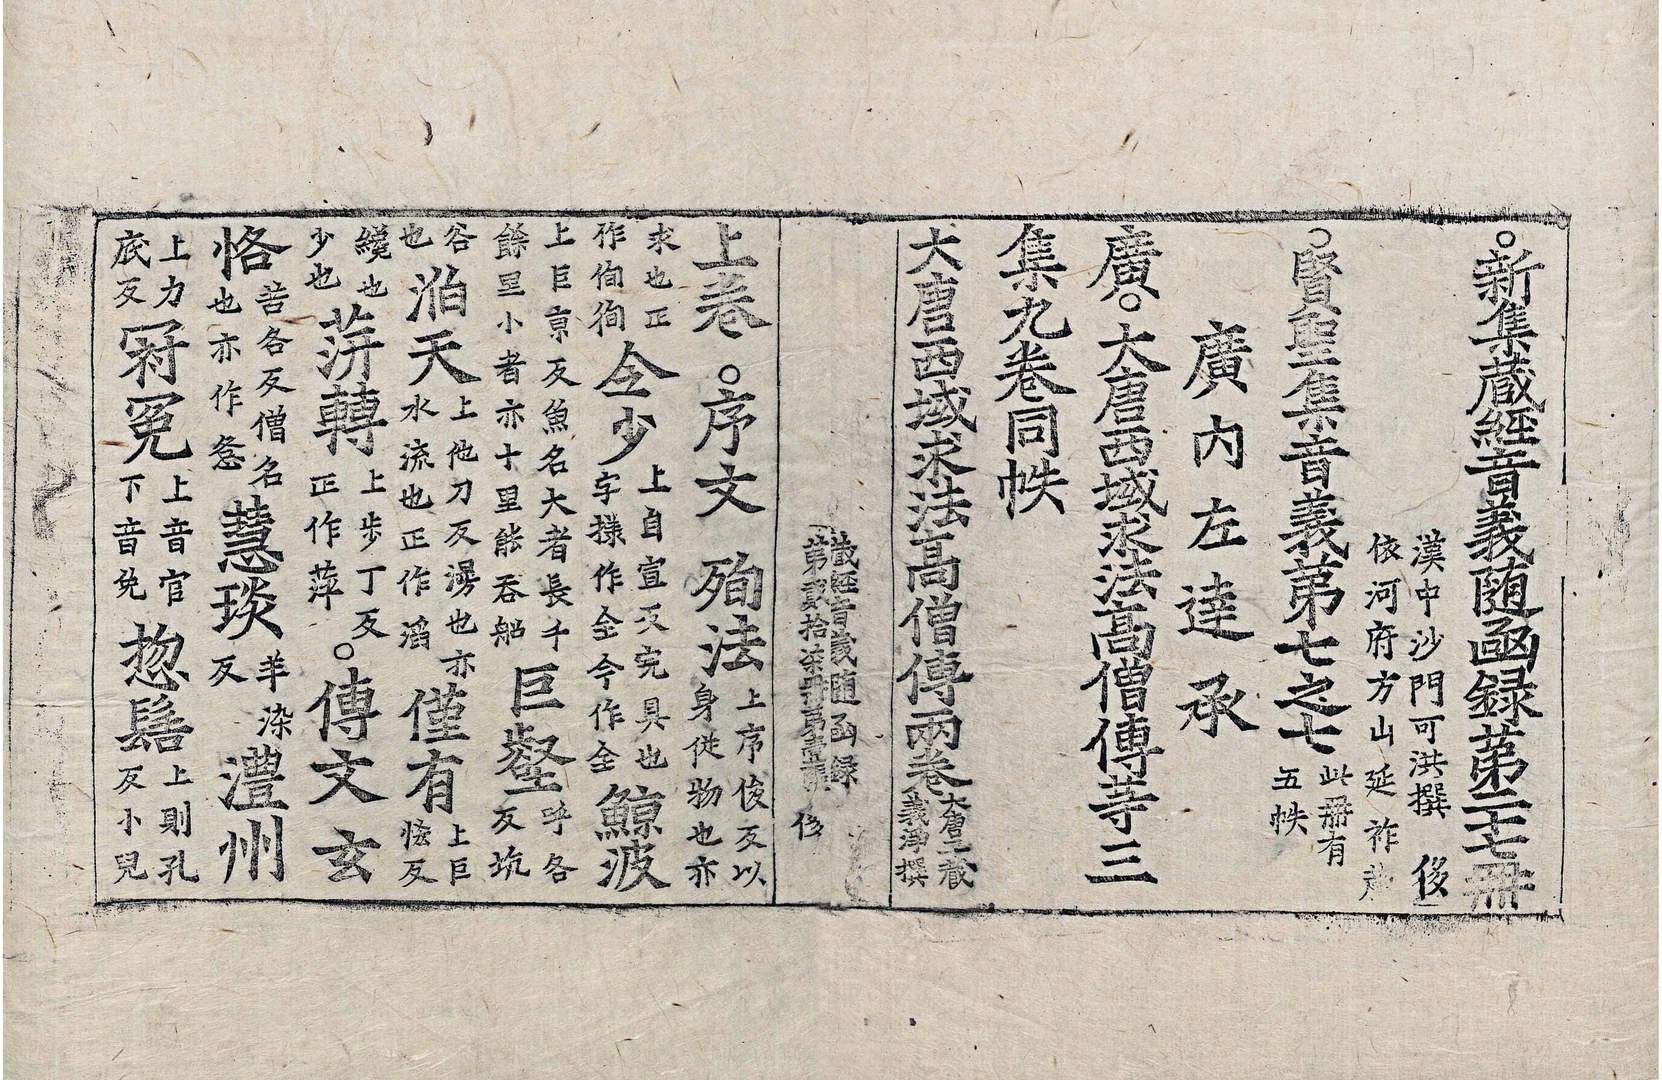 ○新集藏經音義随函録第二十七冊
漢中沙門可洪撰 俊
依河府方山延祚
○賢聖集音義第七之七 此冊有
五帙
廣內左達承
廣○大唐西域求法高僧傳䓁三
集九卷同帙
大唐西域求法高僧傳兩卷 大唐三藏
義淨撰
藏經音義随函録
第貳拾柒冊第壹張 俊
上卷○序文 殉法 上序俊反以
身從物也亦
求也正
作侚徇 㒰少 上自宣反完具也
字樣作全今作全 鯨波
上巨京反魚名大者長千
餘里小者亦十里能吞船 巨壑 呼各
反坑
谷
也 滔天 上他刀反漫也亦
水流也正作滔 僅有 上巨
恡反
纔也
少也 蓱轉 上步丁反
正作萍 ○傳文 玄
恪 苦各反僧名
也亦作愙 慧琰 羊染
反 澧州
上力
底反 冠冕 上音官
下音免 惚髫 上則孔
反小兒